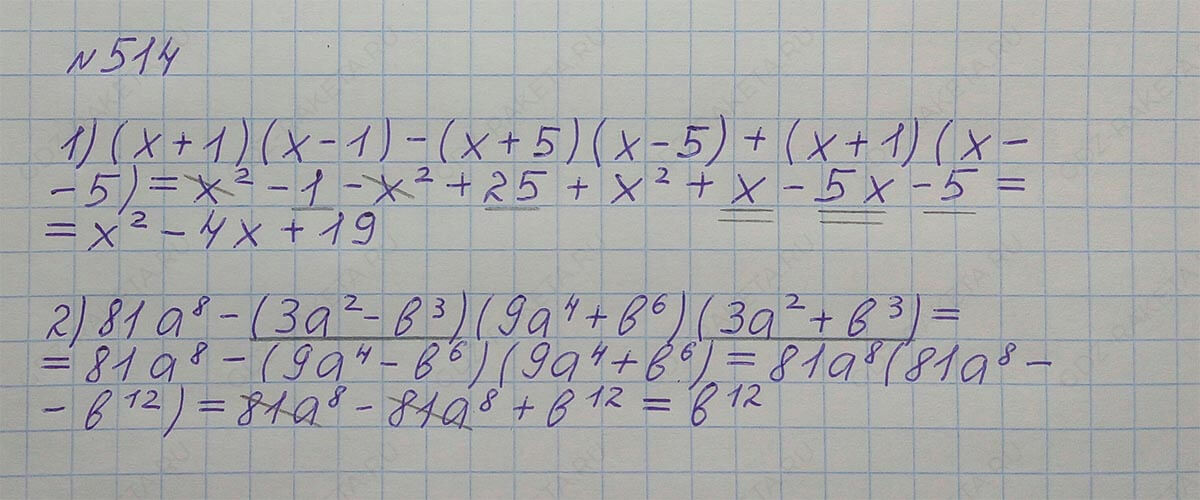 №514
1) (x + 1) (x - 1) - (x + 5) (x - 5) + (x + 1) (x -
- 5) = x² - 1 - x² + 25 + x² + x - 5x - 5 =
= x² - 4x + 19
2) 81a⁸ - (3a² - в³) (9a⁴ + в⁶) (3a² + в³) =
= 81a⁸ - (9a⁴ - в⁶) (9a⁴ + в⁶) = 81a⁸ (81a⁸ -
- в¹²) = 81a⁸ - 81a⁸ + в¹² = в¹²